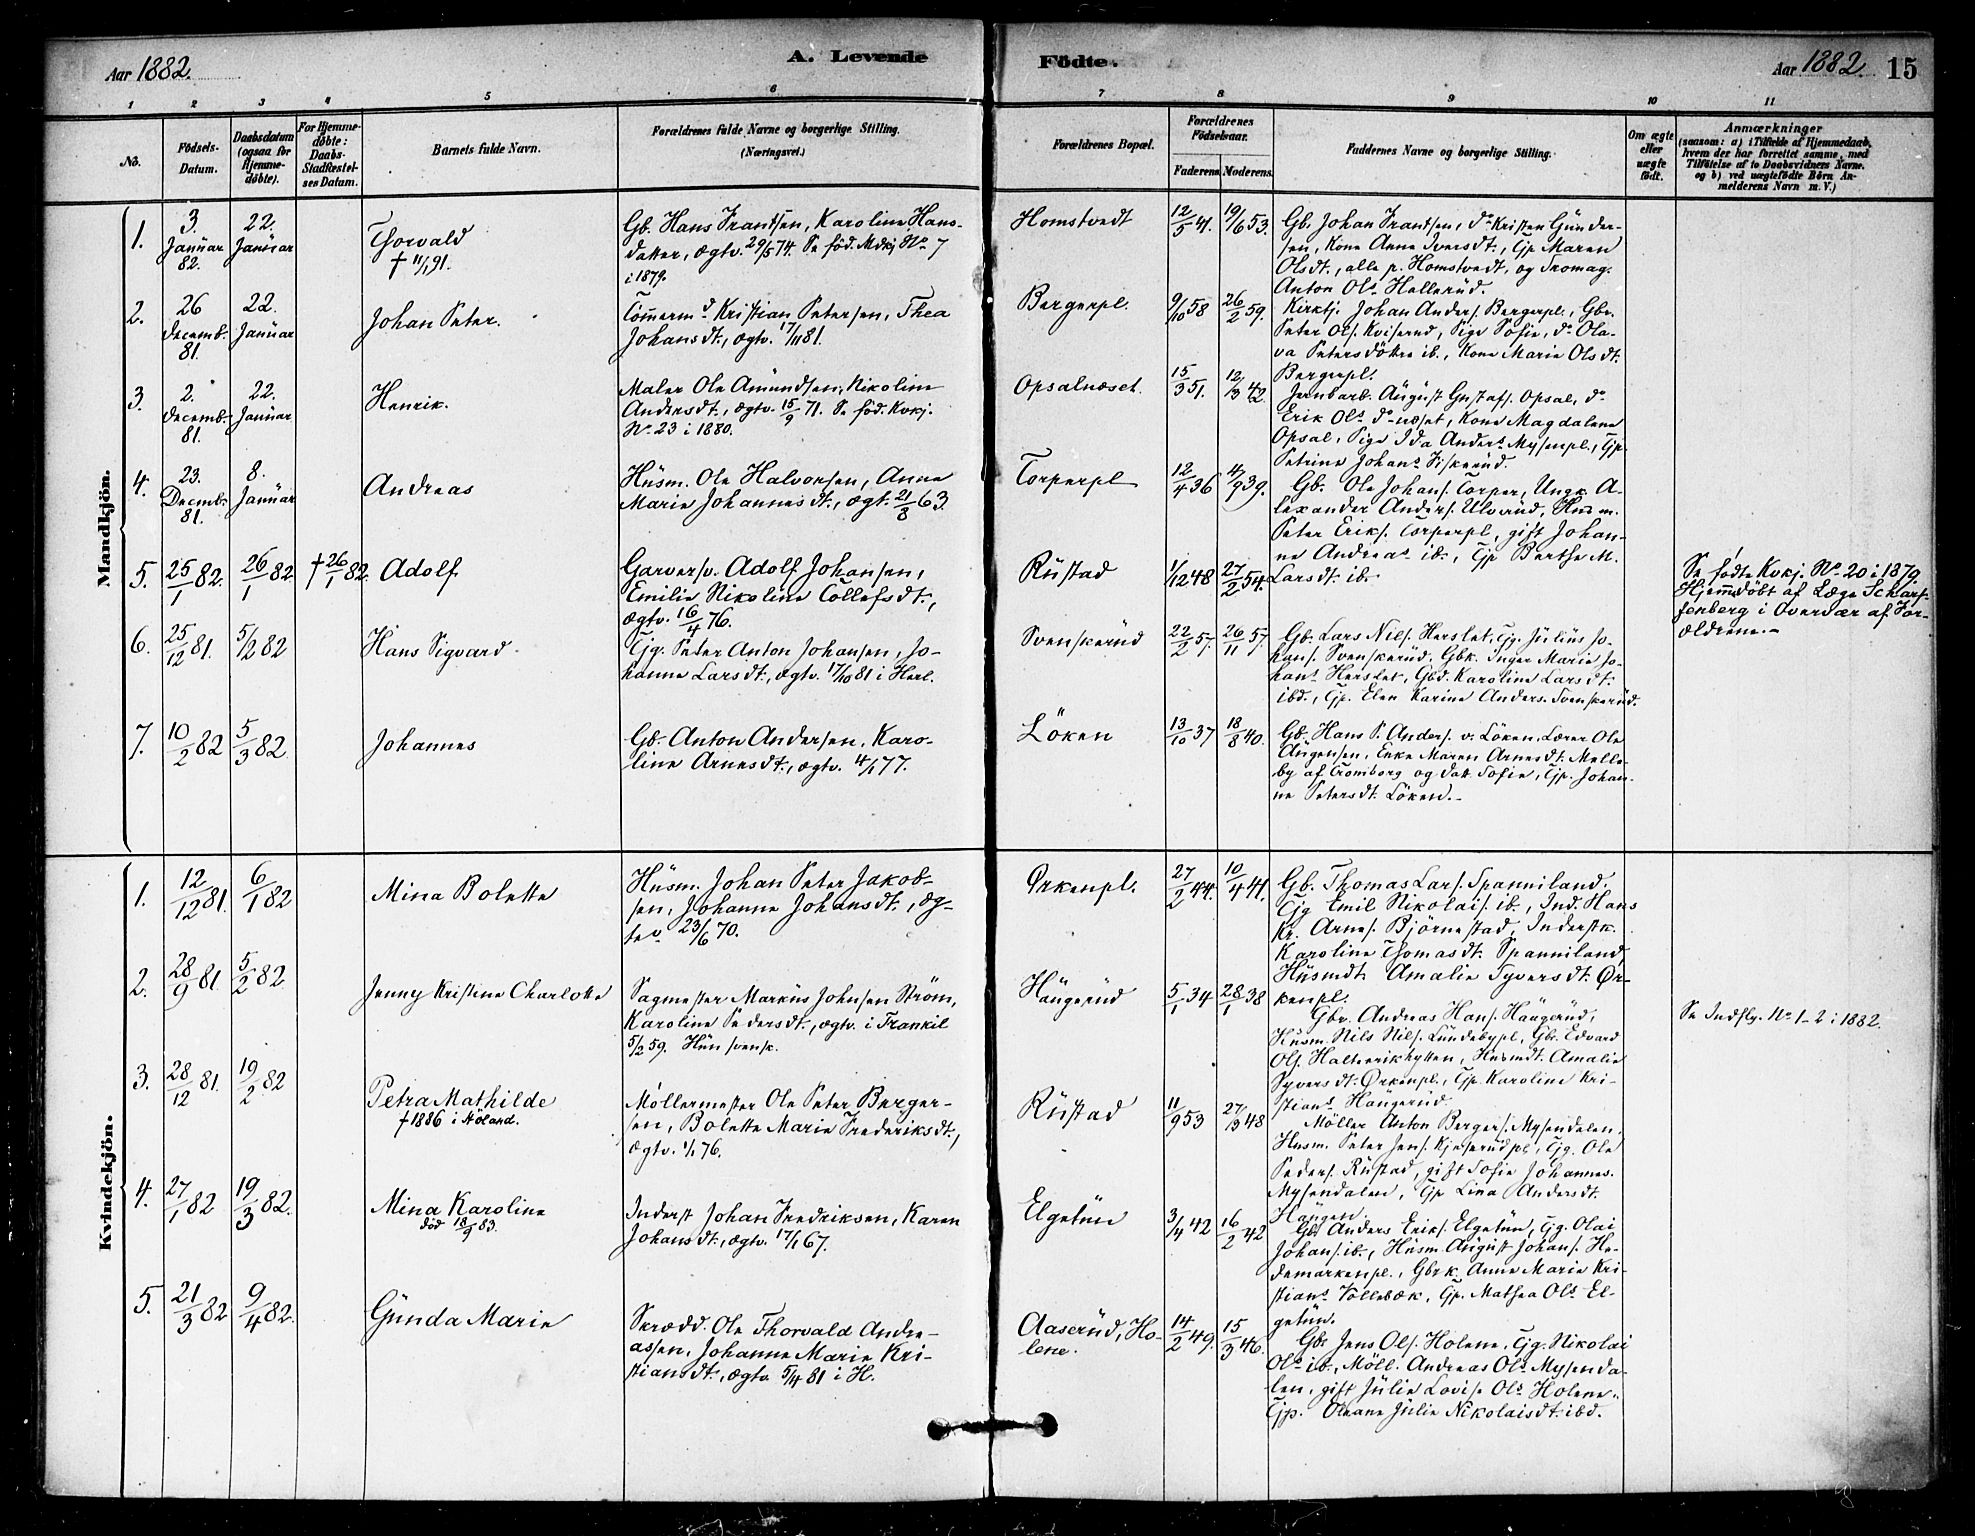 Aar 1882.
A. Levende
Födte.
Aar 1882.
15
1 2 3 4 5 6 7 8 9 10 11
No.
Födsels-
Datum.
Daabsdatum
(ogsaa for
Hjemme-
döbte).
For Hjemme-
döbte:
Daabs-
Stadfæstel-
ses Datum.
Barnets fulde Navn.
Forældrenes fulde Navne og borgerlige Stilling.
(Næringsvei.)
Forældrenes Bopæl.
Forældrenes
Födselsaar.
Faderens. Moderens.
Faddernes Navne og borgerlige Stilling.
Om ægte
eller
uægte
födt.
Anmærkninger
(saasom: a) i Tilfælde af Hjemmedaab,
hvem der har forrettet samme, med
Tilföielse af to Daabsvidners Navne.
og b) ved uægtefödte Börn An-
melderens Navn m. V.)
Mandkjön.
1.
3.
Januar
82.
22.
Januar
Thorvald
† 11/1 91.
Gb. Hans Frandsen, Karoline Hans-
datter, ægtv. 29/5 74. Se föd. Mdkj. No. 7
i 1879.
Homstvedt
12/5 41.
19/6 53.
Gb. Johan Frandsen, do Kristen Gunder-
sen, Kone Anne Iversdt., Gp Maren
Olsdt., alle p. Homstvedt, og Fromag.
Anton Ols. Hallerud.
2.
26
Decemb.
81.
22.
Januar
Johan Peter.
Tömermd Kristian Petersen, Thea
Johansdt., ægtv. 17/11 81.
Bergerpl.
9/10 58
26/2 59.
Kirketj. Johan Anders. Bergerpl., Gbr.
Peter Ols. Kviserud, Pige Sofie, do Ola-
va Petersdöttre ib., Kone Marie Olsdt.
Bergerpl.
3.
2.
Decemb.
81.
22.
Januar
Henrik.
Maler Ole Amundsen, Nikoline
Andersdt., ægtv. 15/9 71. Se föd. Kvkj.
No. 23 i 1880.
Opsalnæset.
15/3 51.
12/3 42.
Jernbarb. August Gustafs. Opsal, do
Erik Ols. do-næset, Kone Magdalene
Opsal, Pige Ida Anders. Mysenpl., Gp.
Petrine Johans. Fiskerud.
4.
23.
Decemb.
81.
8.
Januar
Andreas
Husm. Ole Halvorsen, Anne
Marie Johannesdt., ægt. 21/8 63.
Torperpl
12/4 36
4/9 39.
Gb. Ole Johans. Torper, Ungk. A-
lexander Anders. Ulverud, Husm.
Peter Eriks. Torperpl, gift Johan-
ne Andreas. ib., Gp Berthe M.
Larsdt. ib.
5.
25/1 82.
26/1 82
† 26/1 82.
Adolf
Garversv. Adolf Johansen,
Emilie Nikoline Tollefsdt.,
ægtv. 16/4 76.
Rustad
1/12 48
27/2 54.
Se födte Kvkj. No. 20 i 1879.
Hjemdöbt af Læge Scharf-
fenberg i Overvær af For-
ældrene.-
6.
25/12 81.
5/2 82
Hans Sigvard.
Gg. Peter Anton Johansen, Jo-
hanne Larsdt., ægtv. 17/10 81 i Herl.
Svenskerud
22/2 57.
26/11 57.
Gb. Lars Nils. Herslet, Gg. Julius Jo-
hans. Svenskerud. Gbk. Inger Marie Jo-
hans. Herslet, Gbd. Karoline Larsdt.
ibd., Gp. Elen Karine Anders. Svenskerud.
7.
10/2 82
5/3 82
Johannes
Gb. Anton Andersen, Karo-
line Arnesdt., ægtv. 4/1 77.
Löken
13/10 37
18/8 40.
Gb. Hans P. Anders. v. Löken, Lærer Ole
Augensen, Enke Maren Arnesdt. Melle-
by af Tromborg og dat. Sofie, Gp. Johan-
ne Petersdt. Löken.-
Kvindekjön.
1.
12/12 81.
6/1 82
Mina Bolette
Husm. Johan Peter Jakob-
sen, Johanne Johansdt., æg-
tev. 23/6 70.
Örkenpl.
27/2 44.
10/4 41.
Gb. Thomas Lars. Spanniland.
Gg Emil Nikolais. ib., Ind. Hans
Kr. Arnes. Björnestad, Inderstk.
Karoline Thomasdt. Spanniland,
Husmdt. Amalie Syversdt. Ör-
kenpl.
2.
28/9 81.
5/2 82
Jenny Kristine Charlotte
Sagmester Markus Johnsen Ström,
Karoline Pedersdt., ægtv. i Trankil
5/2 59. Hun svensk.
Haugerud
5/1 34
28/1 38
Gbr. Andreas Hans. Haugerud,
Husm. Nils Nils. Lundebypl, Gbr. Edvard
Ols. Haltvrikhytten, Husmdt. Amalie
Syversdt. Örkenpl., Gp. Karoline Kri-
stians. Haugerud.
Se Indfly. No. 1-2 i 1882.
3.
28/12 81.
19/2 82
Petra Mathilde
† 1886 i Höland.
Möllermester Ole Peter Berger-
sen, Bolette Marie Frederiksdt.,
ægtv. 1/1 76.
Rustad
11/9 53
27/3 48
Möller Anton Bergers. Mysendalen,
Husm. Peter Jens. Kjeserudpl, Gg. Ole
Peders. Rustad, gift Sofie Johannes.
Mysendalen, Gp Lina Andersdt.
Haugen.
4.
27/1 82
19/3 82.
Mina Karoline
död 18/9 83.
Inderst Johan Fredriksen, Karen
Johansdt., ægtv. 17/1 67.
Elgetun
3/4 42
16/2 42
Gb Anders Eriks. Elgetun, Gg. Olai
Johans. ib., Husm. August Johans. He-
demarkenpl., Gbrk. Anne Marie Kri-
stians. Vollebæk, Gp. Mathea Ols. El-
getun.
5.
21/3 82
9/4 82.
Gunda Marie
Skrædd. Ole Thorvald Andre-
assen, Johanne Marie Kri-
stiansdt., ægtv. 5/4 81 i H.
Aaserud, Ho-
lene.
14/2 49.
15/3 46.
Gbr Jens Ols. Holene, Gg. Nikolai
Ols ib., Möll. Andreas Ols. Mysenda-
len, gift Julie Lovise Ols. Holene.
Gp. Oleane Julie Nikolaisdt. ibd.